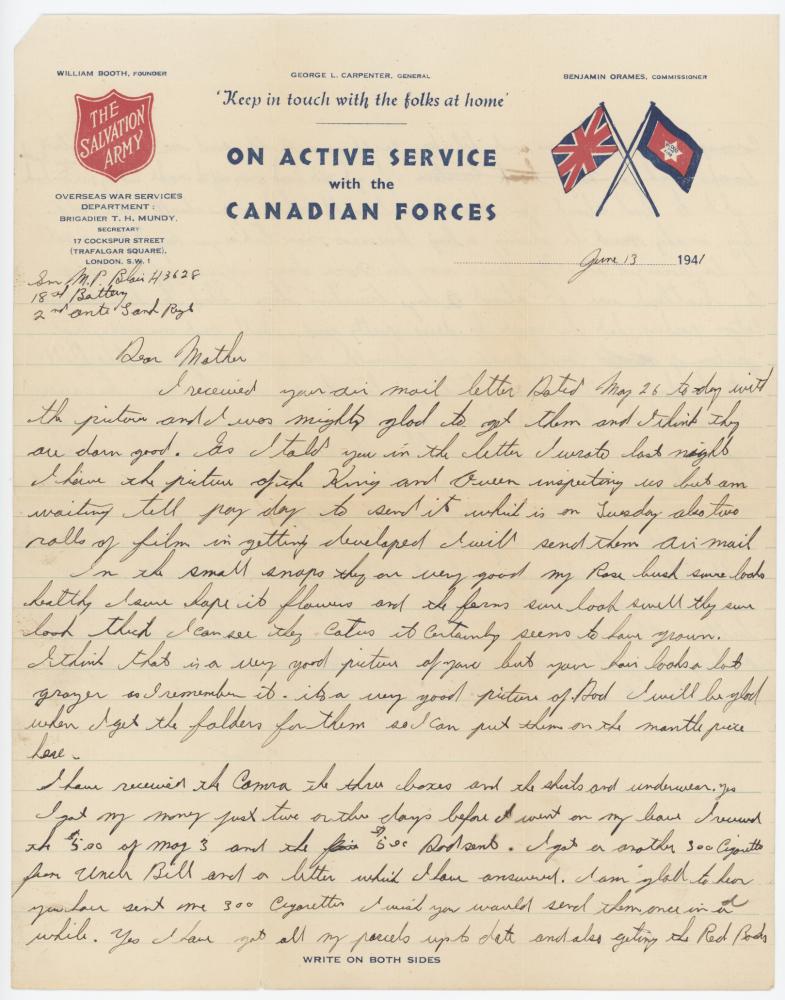 WILLIAM BOOTH, FOUNDER
GEORGE L. CARPENTER, GENERAL
BENJAMIN ORAMES, COMMISSIONER
THE
SALVATION
ARMY
'Keep in touch with the folks at home'
ON ACTIVE SERVICE
with the
CANADIAN FORCES
OVERSEAS WAR SERVICES
DEPARTMENT:
BRIGADIER T. H. MUNDY,
SECRETARY
17 COCKSPUR STREET
(TRAFALGAR SQUARE),
LONDON, S.W. 1
June 13 1941
M.P. Blair H3628
18 Battery
2nd anti Tank Regt
Dear Mother
I received your air mail letter Dated May 26 to-day with
the picture and I was mighty glad to get them and I think they
are darn good. As I told you in the letter I wrote last night
I have the picture of the King and Queen inspecting us but am
waiting till pay day to send it which is on Tuesday also two
rolls of film in getting developed I will send them air mail
In the small snaps they are very good my Rose bush sure looks
healthy I sure hope it flowers and the ferns sure look swell they sure
look thick I can see they Catus it certainly seems to have grown.
I think that is a very good picture of you but your hair looks a lot
grayer as I remember it. its a very good picture of Dad I will be glad
when I get the folders for them so I can put them on the mantle piece
here.
I have received the Camra the three boxes and the shirts and underwear. yes
I got my money just two or three days before I went on my leave I received
the $5.00 of May 3 and the $5.00 Dad sent. I got a another 300 Cigaretts
from Uncle Bill and a letter which I have answered. I am glad to hear
you have sent me 300 Cigarettes I wish you would send them once in a
while. Yes I have got all my parcels up to date and also geting the Red Books
WRITE ON BOTH SIDES